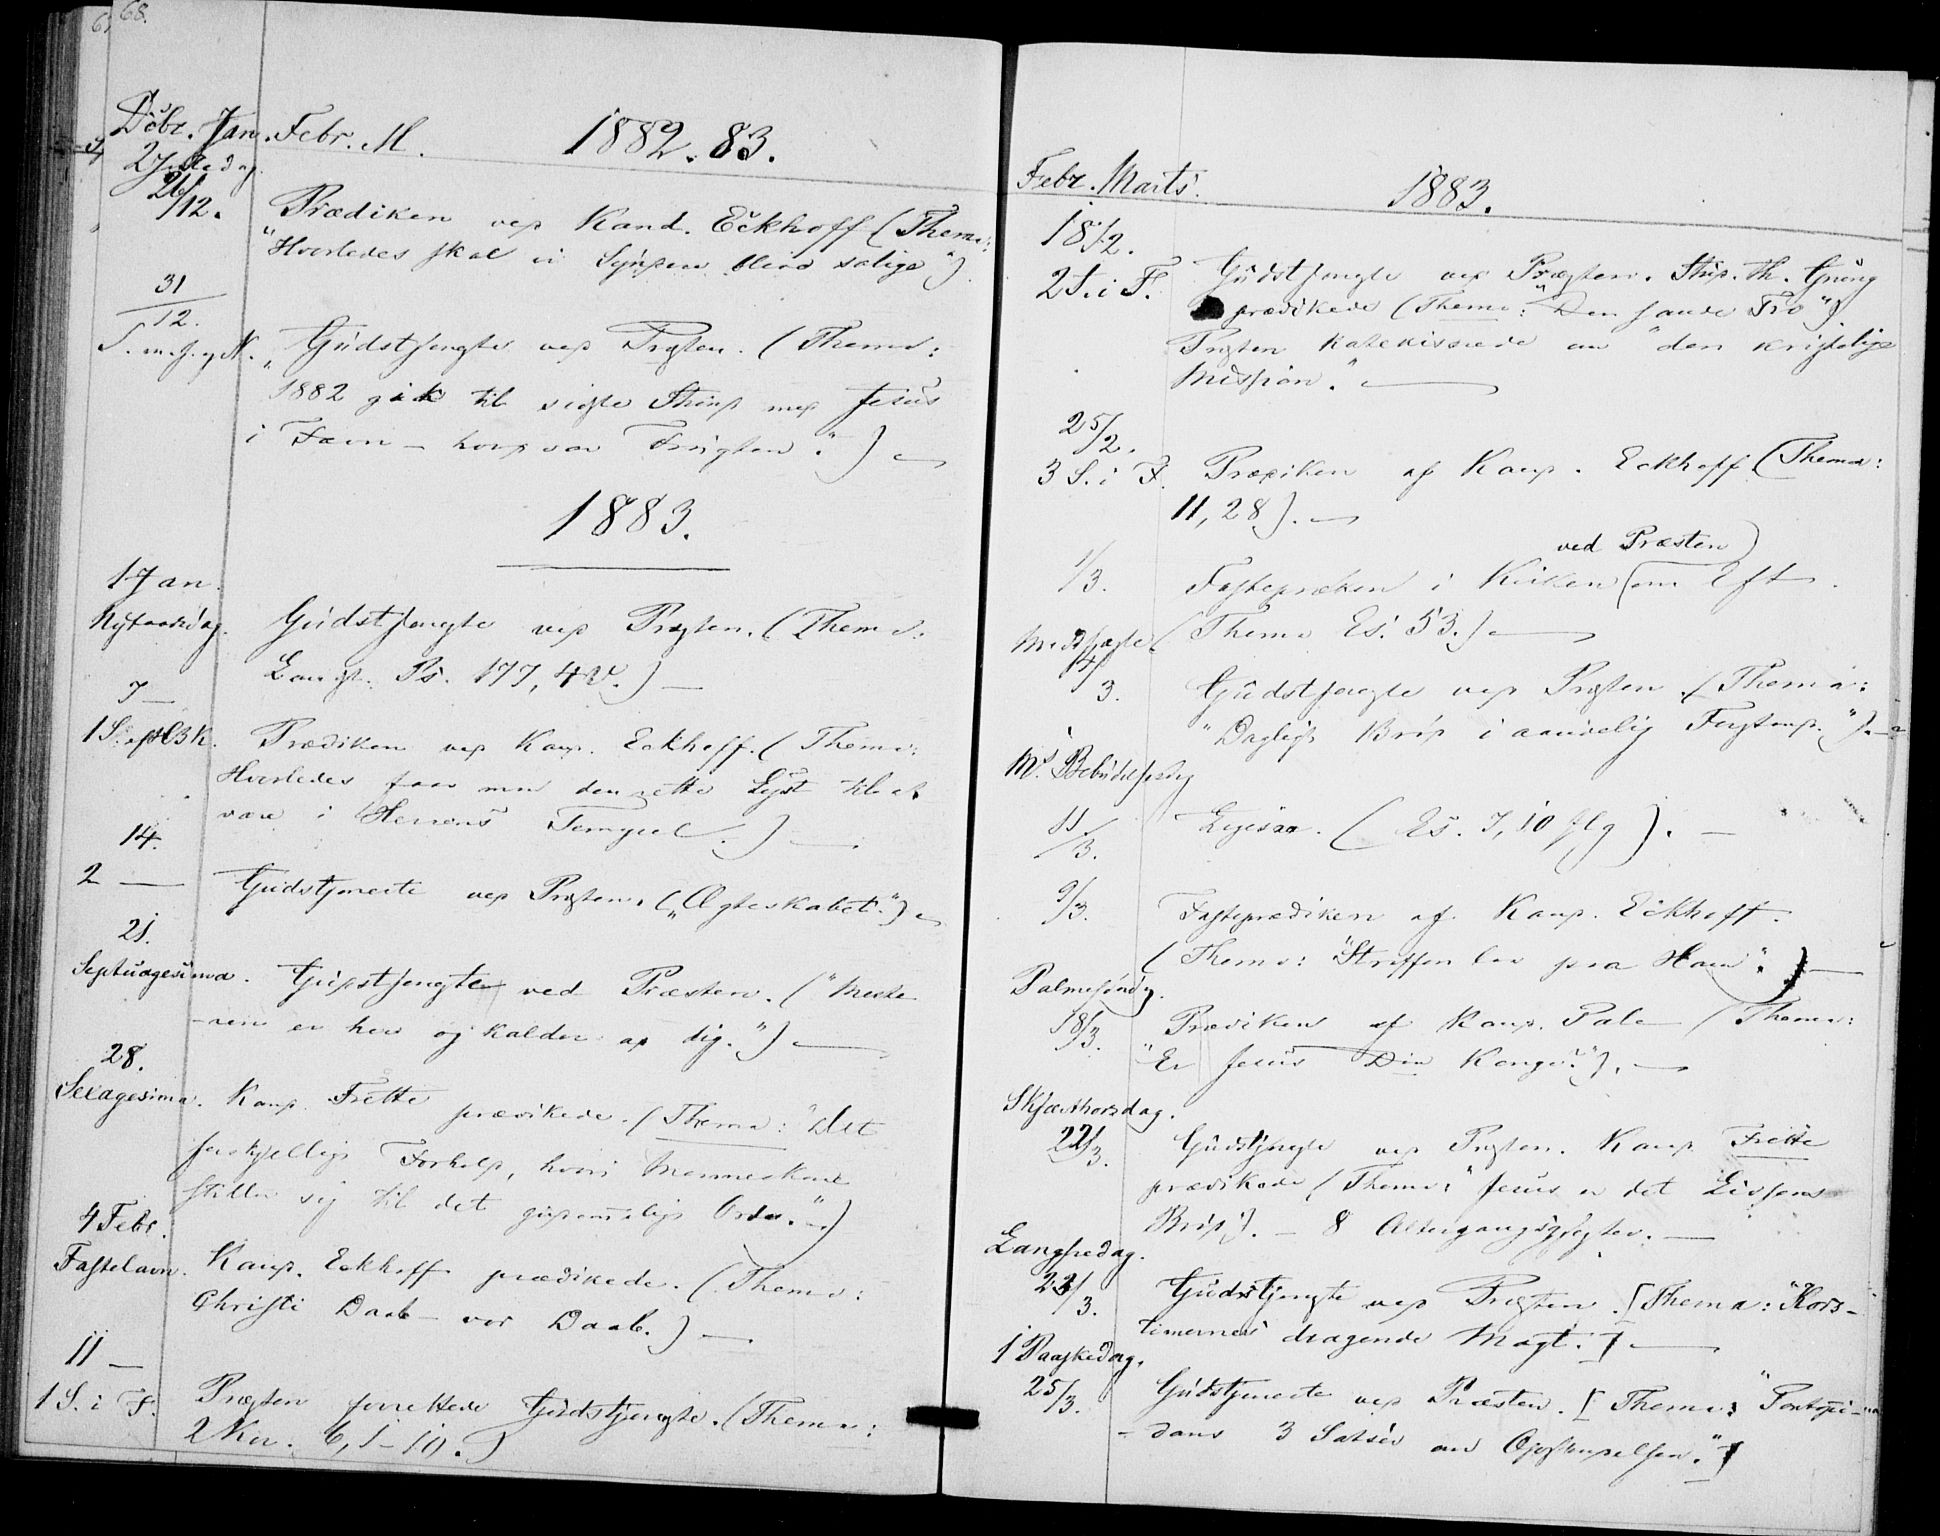 68.
Decbr. Jan. Febr. M. 1882. 83.
2 Juledag
26/12. Prædiken ved Kand. Eckhoff (Thema:
"Hvorledes skal vi Syndere blive salige").
31/12.
S. m. J. og N. Gudstjeneste ved Præsten. (Thema:
"1882 gik til sidste Stund med Jesus
i Favn – hvad var Frugten".) –
1883.
1 Jan.
Nytaarsdag. Gudstjeneste ved Præsten. (Thema:
Landst. Ps. 177, 4 V.) –
7 –
1 S. eft. H3K. Prædiken ved Kand. Eckhoff. (Thema:
Hvorledes faar man den rette Lyst til at
være i Herrens Tempel.) –
14.
2 – Gudstjeneste ved Præsten. („Ægteskabet.") –
21.
Septuagesima. Gudstjeneste ved Præsten. ("Meste-
-ren er her og kalder ad dig.") –
28.
Sexagesima. Kand. Frette prædikede. (Thema: "Det
forskjellige Forhold, hvori Menneskene
stiller sig til det guddommelige Ord". –)
4 Febr.
Fastelavn. Kand. Eckhoff prædikede. (Thema:
Christi Daab – vor Daab.) –
11 –
1 S. i F. Præsten forrettede Gudstjeneste. (Thema:
2 Kor. 6, 1–10.)
Febr. Marts. 1883.
18/2.
2 S. i F. Gudstjeneste ved Præsten. Stud. th.
prædikede (Thema: "Den sande Tro")
Præsten katekiserede om "den kristelige
Mission." –
25/2.
3 S. i F. Prædiken af Kand. Eckhoff (Thema:
11, 28). –
ved Præsten)
1/3. Fasteprædiken i Kirken (om Eft.
(Thema Es. 53.) –
Midfaste
4/3. Gudstjeneste ved Præsten. (Thema:
"Dagligt Brød i aandelig Forstand.") –
M. Bebudelsesdag
11/3. Ligesaa. (Es. 7, 10 flg). –
9/3. Fasteprædiken af Kand. Eckhoff.
(Thema: "Straffen laa paa Ham".) –
Palmesøndag.
18/3. Prædiken af Kand. Dale (Thema:
"Er Jesus Din Konge?"). –
Skjærthorsdag.
22/3. Gudstjeneste ved Præsten. Kand. Frette
prædikede (Thema: "Jesus er det Livsens
Brød"). – 8 Altergangsgjæster. –
Langfredag.
23/3. Gudstjeneste ved Præsten. [Thema: "Kors-
timernes dragende Magt.] –
1 Paaskedag.
25/3. Gudstjeneste ved Præsten. [Thema: "Pontopi-
-dans 3 Satser om Opstandelsen."]